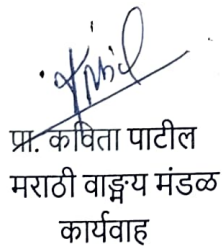 प्रा. कविता पाटील
मराठी वाङ्मय मंडळ
कार्यवाह